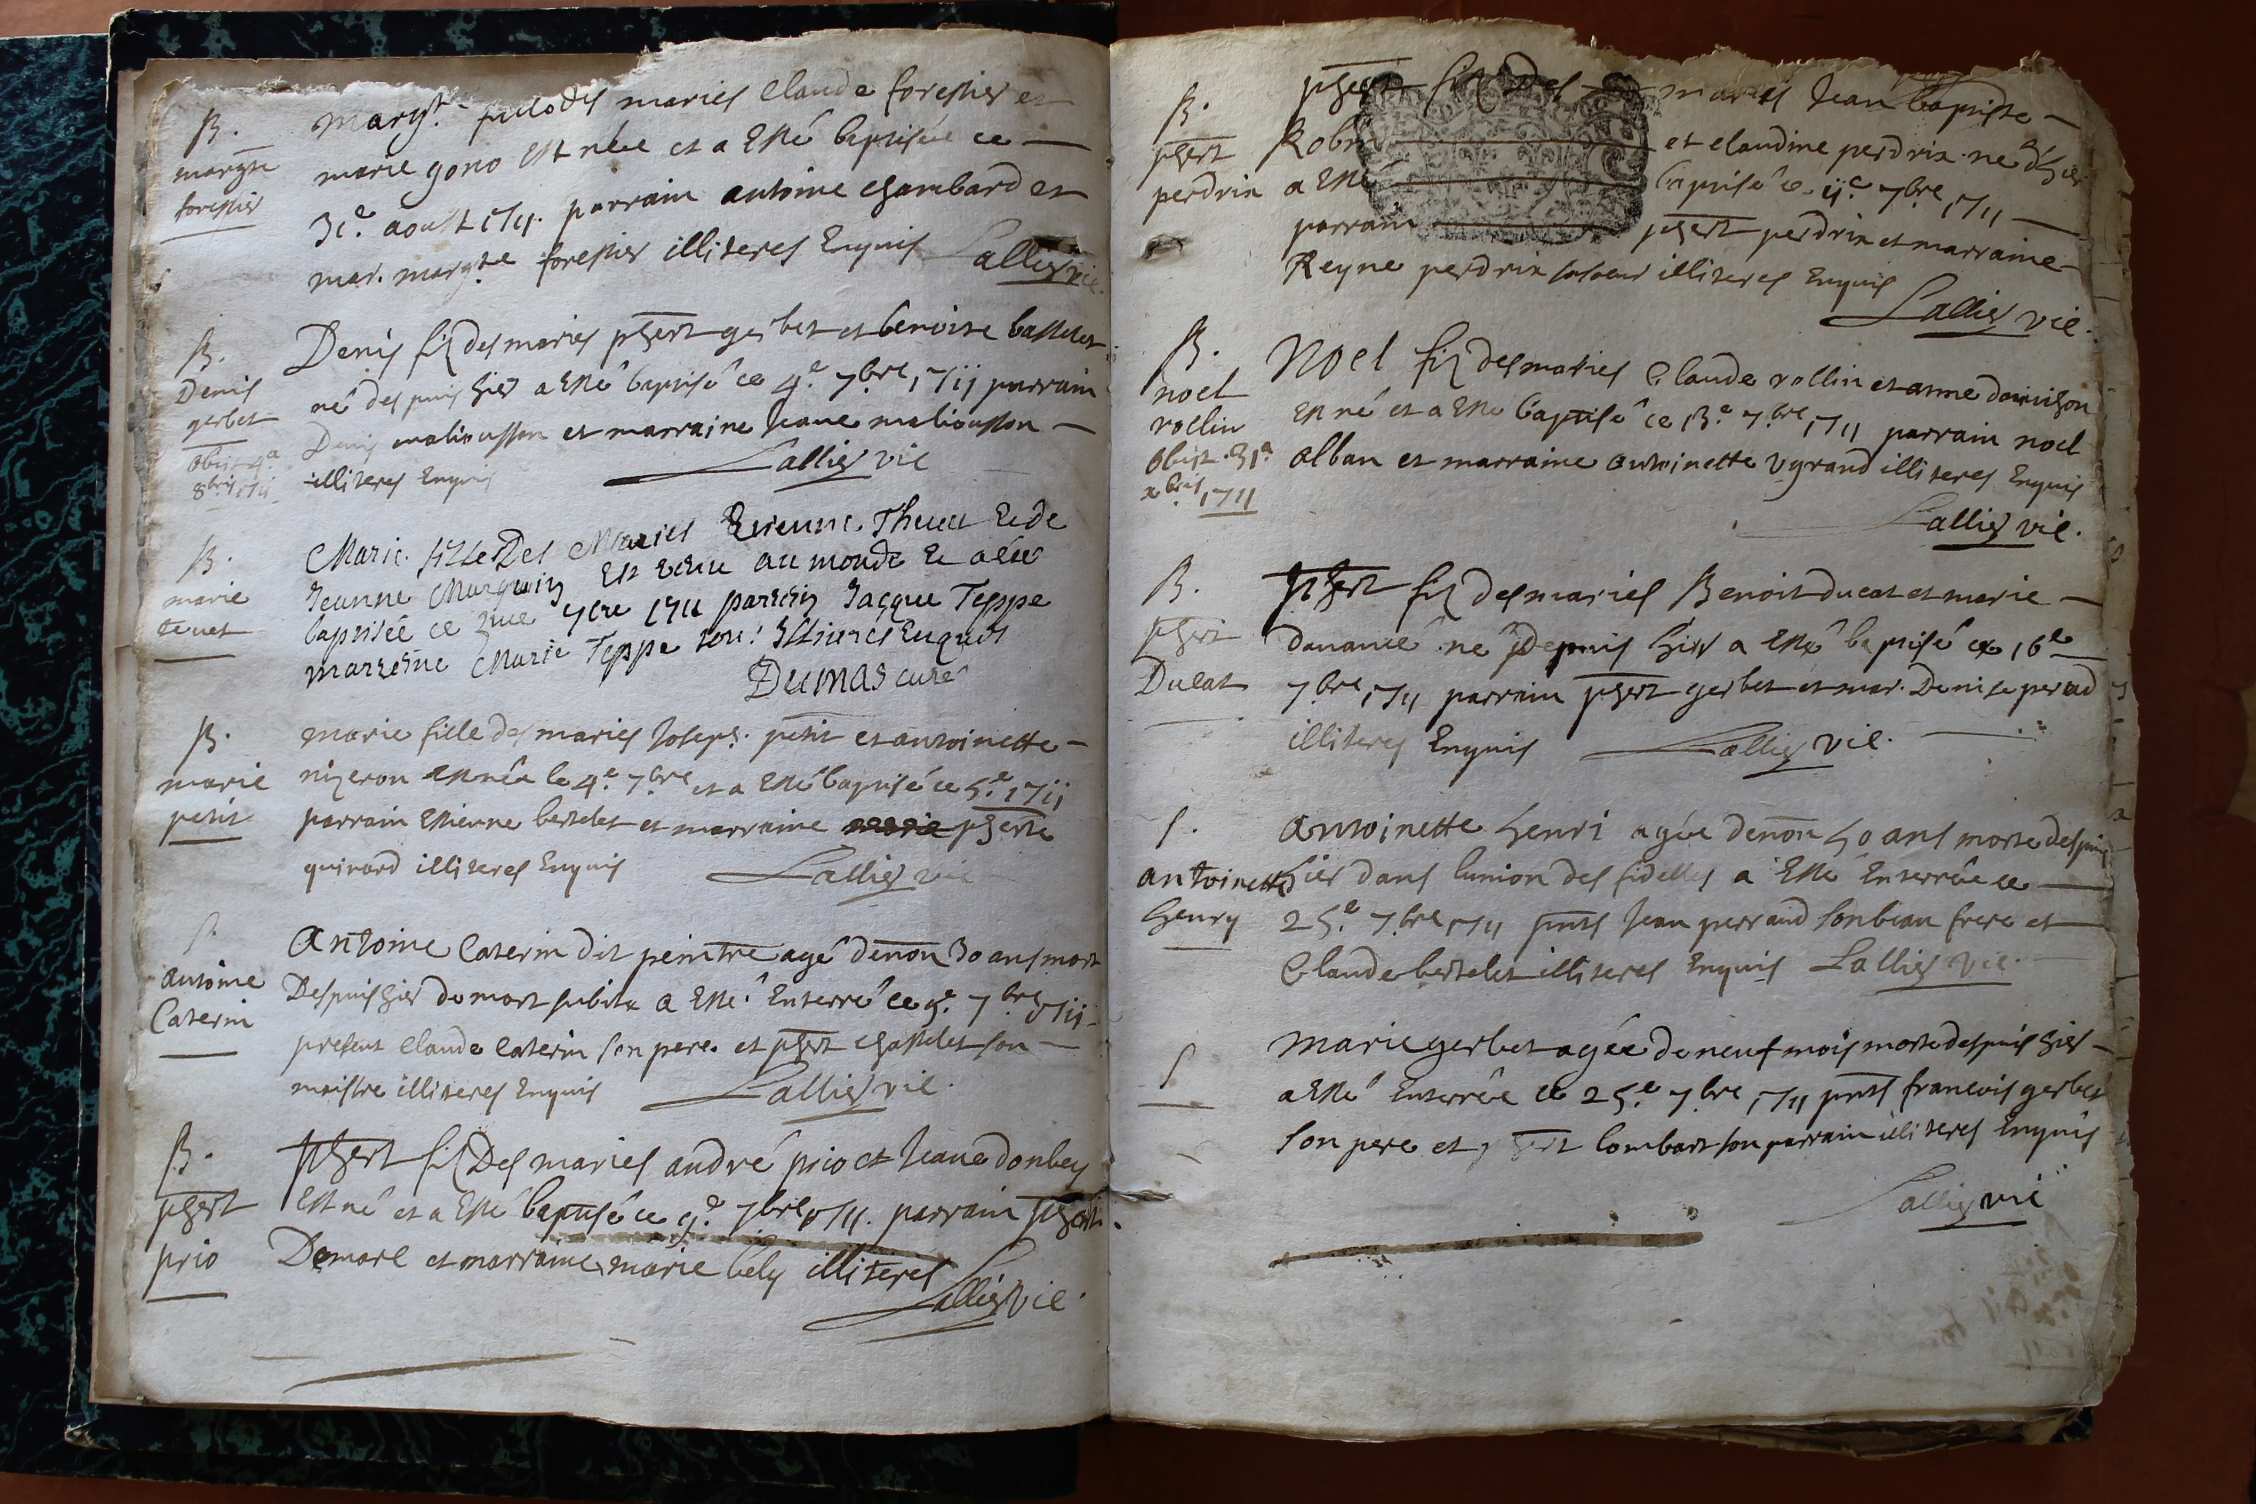 B.
margte
forestier
margte fille des maries Claude forestier et
marie gono est née et a esté baptisée ce
31e aoust 1711. parrain antoine chambard et
mar. margte forestier illiteres Enquis Lallier vic.
B.
Denis
gerbet
obiit 4a
8bris 1711
Denis fil des maries phert gerbet et benoite bastelet
né despuis hier a esté baptisé ce 4e 7bre 1711 parrain
Denis maliousson et marraine Jeane maliousson
illiteres Enquis Lallier vic
B.
marie
tevet
Marie fille Des Maries Etienne Thevet Et de
Jeanne Murguin Est venu au monde Et a été
baptisée ce 7bre 1711 parrein Jacque Teppe
marreine Marie Teppe Illitures Enquis
Dumas curé
B.
marie
petit
marie fille des maries Joseph petit et antoinette
nizeron est née le 4e 7bre et a esté baptisée ce 5e 1711
parrain Estienne bertelet et marraine marie pherte
guinard illiteres Enquis Lallier vic
S.
antoine
Caterin
Antoine Caterin dit peintre agé denon 30 ans mort
Despuis hier de mort subite a esté Enterré ce 5e 7bre 1711
present Claude Caterin son pere et phert chastelet son
maistre illiteres Enquis Lallier vic.
B.
phert
prio
phert fil Des maries andré prio et Jeane donbey
est né et a esté baptisé ce 9e 7bre 1711. parrain phert
Demare et marraine marie bely illiteres
Lallier vic.
B.
phert
perdrix
phert fil Des maries Jean baptiste
Robi et claudine perdrix né d'hier
a esté baptisé ce 11e 7bre 1711
parrain phert perdrix et marraine
Reyne perdrix sa soeur illiteres Enquis
Lallier vic.
B.
noel
rollin
obiit 31a
xbris 1711
Noel fil des maries Claude rollin et anne
est né et a esté baptisé ce 13e 7bre 1711 parrain noel
alban et marraine antoinette vgrand illiteres Enquis
Lallier vic.
B.
phert
Ducat
phert fil des maries Benoit ducat et marie
danancé né Depuis hier a esté baptisé ce 16e
7bre 1711 parrain phert gerbet et mar. Denise
illiteres Enquis Lallier vic.
S.
antoinette
henry
Antoinette henri agée denon 50 ans morte despuis
hier dans lunion des fidelles a esté Enterrée ce
25e 7bre 1711 pnts Jean perraud son beau frere et
Claude bertelet illiteres Enquis Lallier vic.
S
marie gerbet agée de neuf mois morte despuis hier
a esté Enterrée ce 25e 7bre 1711 pnts francois gerbet
son pere et phert lombart son parrain illiteres Enquis
Lallier vic